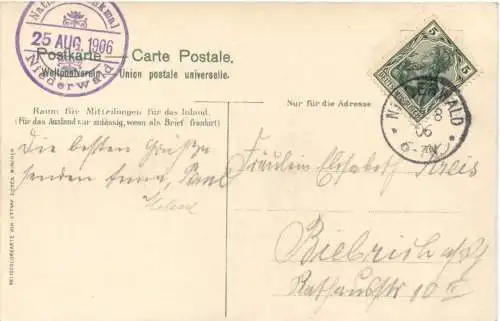 National-Denkmal
25 AUG. 1906
Niederwald
Postkarte — Carte Postale.
Weltpostverein — Union postale universelle.
Raum für Mitteilungen für das Inland.
(Für das Ausland nur zulässig, wenn als Brief frankiert)
Nur für die Adresse
5 5
8
06
6-7N
Die besten Grüße
senden Anna, Paul
Helene
Fräulein Elisabeth Kreis
Biebrich a/Rh
Rathausstr 10 II